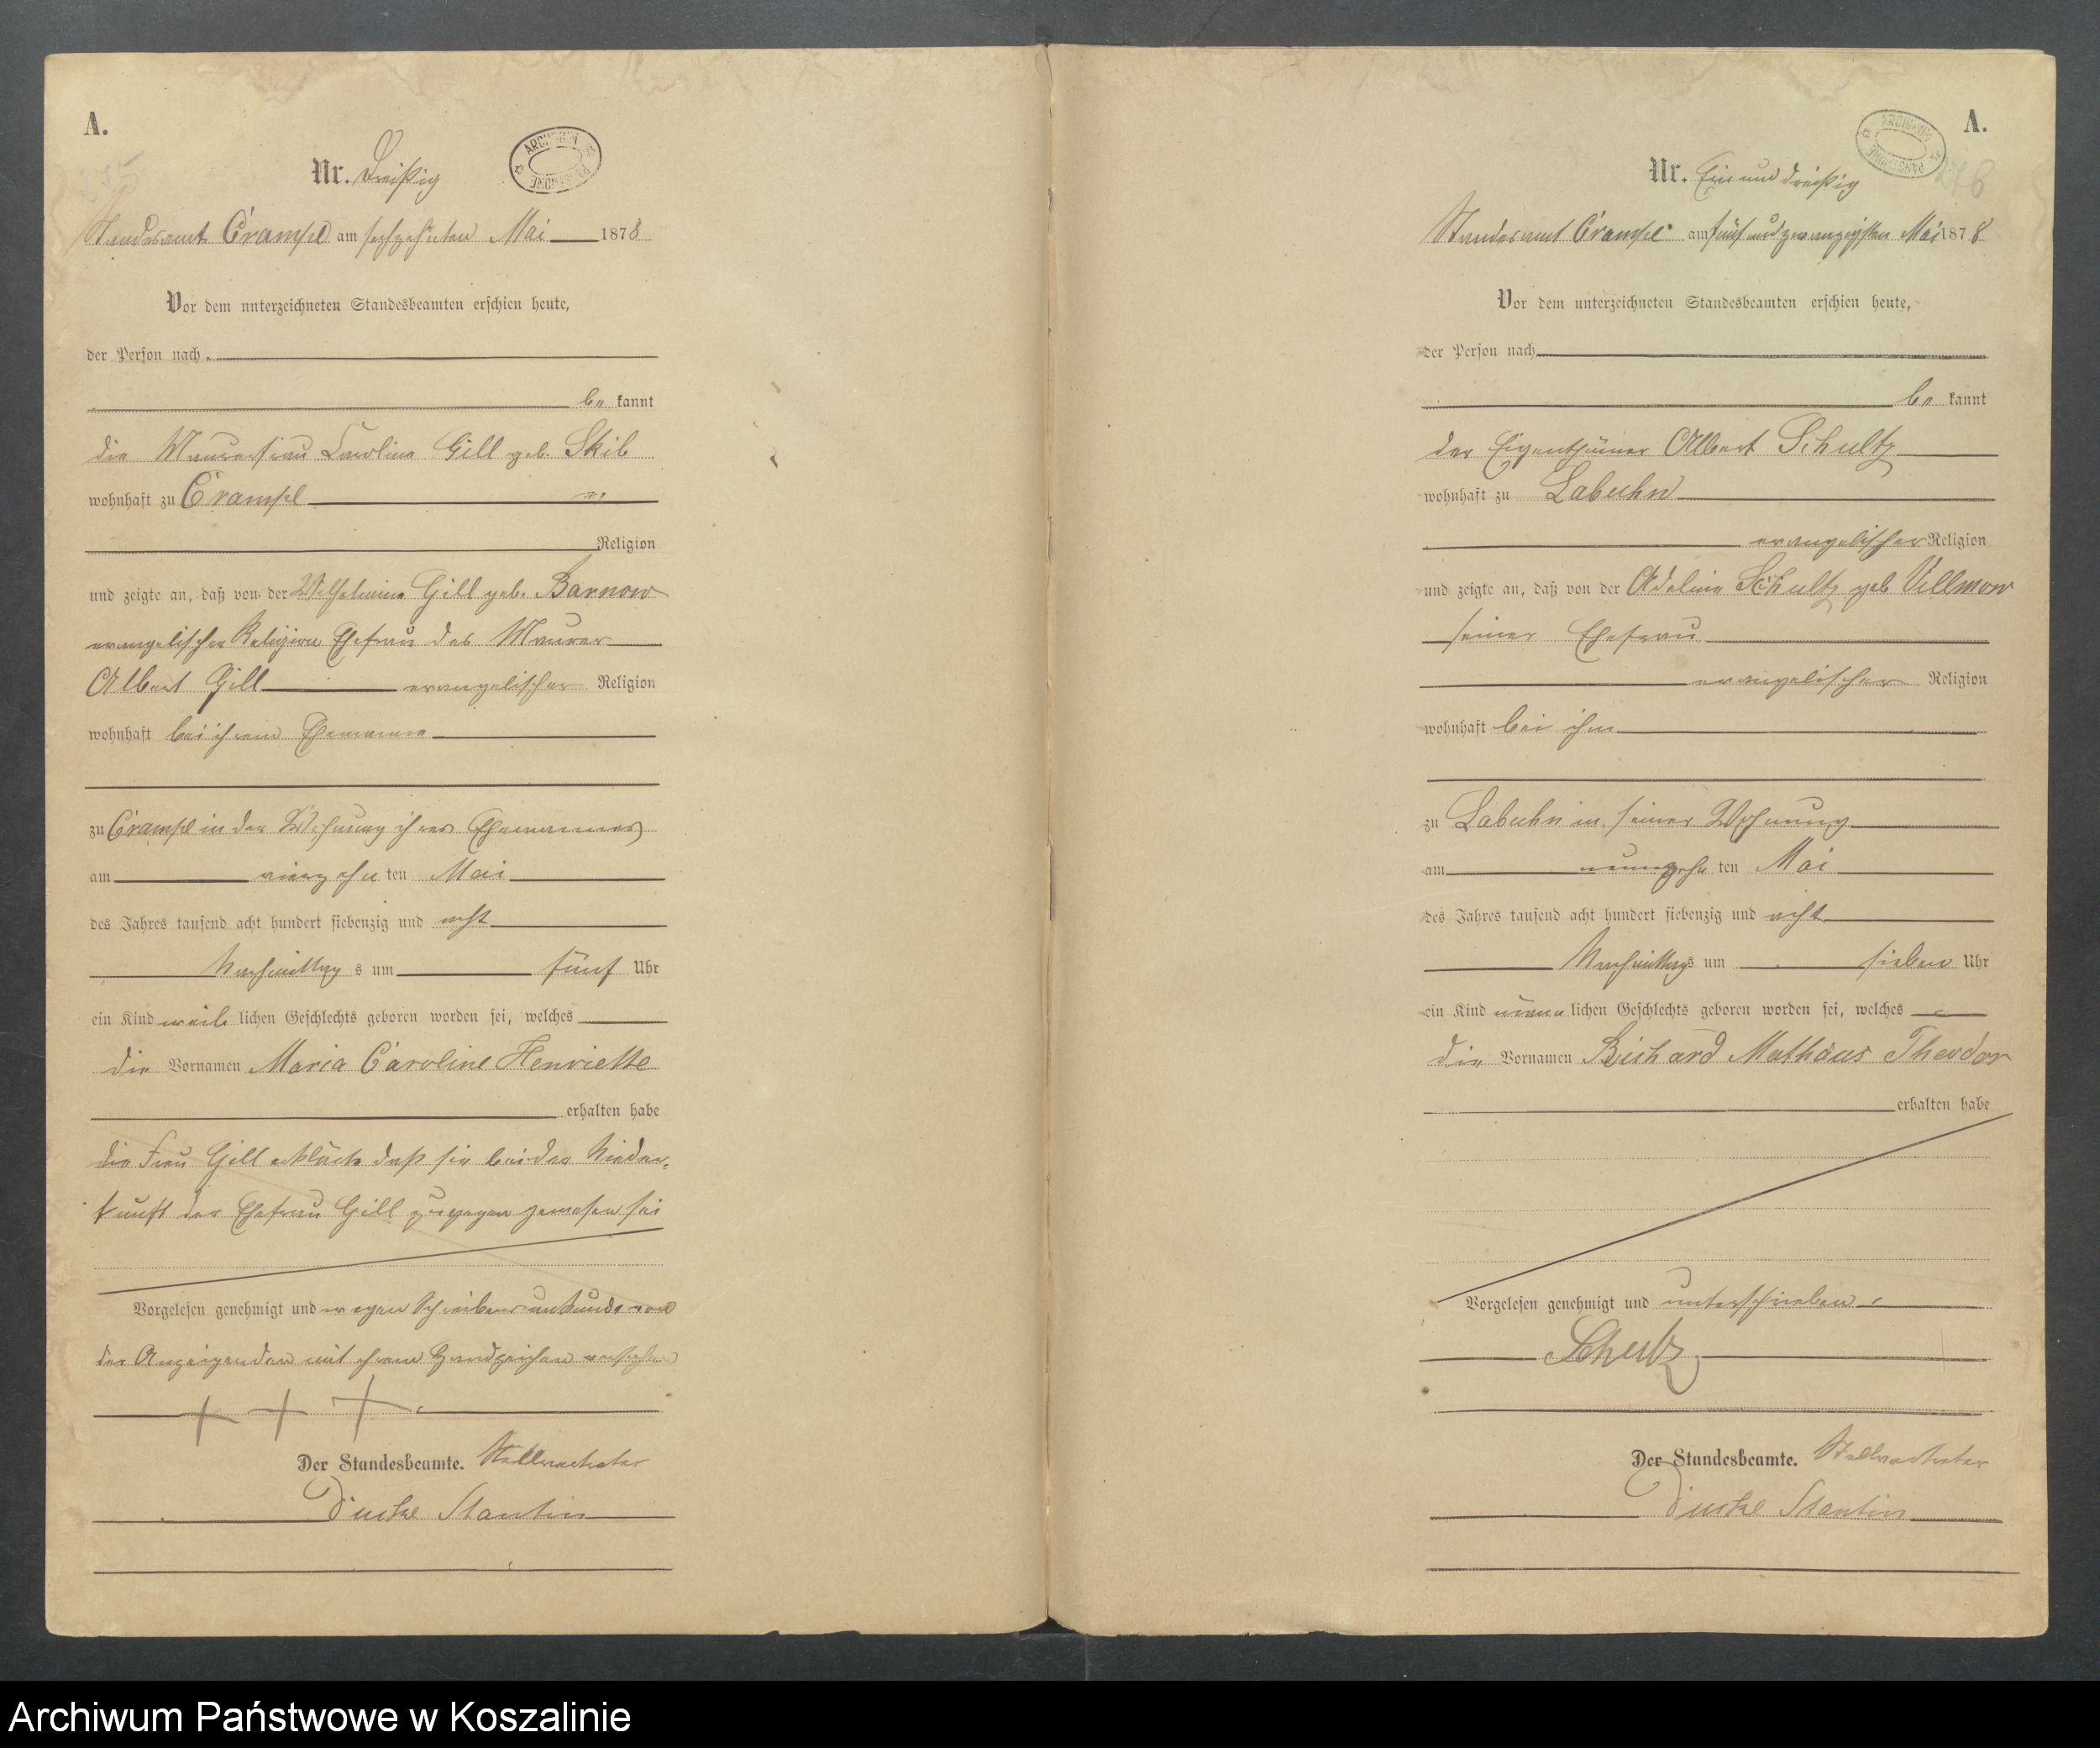 A.
Nr. Dreißig
ARCHIWUM PAŃSTWOWE
Standesamt Crampe am sechzehnten Mai 1878
Vor dem unterzeichneten Standesbeamten erschien heute,
der Person nach
be kannt
die Maurerfrau Caroline Gill geb. Skib
wohnhaft zu Crampe
Religion
und zeigte an, daß von der Wilhelmine Gill geb. Barnow
evangelischer Religion Ehefrau des Maurer
Albert Gill evangelischer Religion
wohnhaft bei ihrem Ehemanne
zu Crampe in der Wohnung ihres Ehemannes
am vierzehn ten Mai
des Jahres tausend acht hundert siebenzig und acht
Nachmittag s um fünf Uhr
ein Kind weib lichen Geschlechts geboren worden sei, welches
die Vornamen Maria Caroline Henriette
erhalten habe
die Frau Gill erklärte daß sie bei der Nieder-
kunft der Ehefrau Gill zugegen gewesen sei
Vorgelesen genehmigt und wegen Schreibensunkunde von
der Anzeigenden mit ihrem Handzeichen versehen
+ + +
Der Standesbeamte. Stellvertreter
Stantin
A.
Nr. Ein und dreißig
ARCHIWUM PAŃSTWOWE
276
Standesamt Crampe am fünf und zwanzigsten Mai 1878
Vor dem unterzeichneten Standesbeamten erschien heute,
der Person nach
be kannt
der Eigenthümer Albert Schultz
wohnhaft zu Labuhn
evangelischer Religion
und zeigte an, daß von der Adeline Schultz geb Vellmow
seiner Ehefrau
evangelischer Religion
wohnhaft bei ihm
zu Labuhn in seiner Wohnung
am neunzehn ten Mai
des Jahres tausend acht hundert siebenzig und acht
Nachmittags um sieben Uhr
ein Kind männ lichen Geschlechts geboren worden sei, welches
die Vornamen Richard Mathäus Theodor
erhalten habe
Vorgelesen genehmigt und unterschrieben
Schultz
Der Standesbeamte. Stellvertreter
Stantin
Archiwum Państwowe w Koszalinie